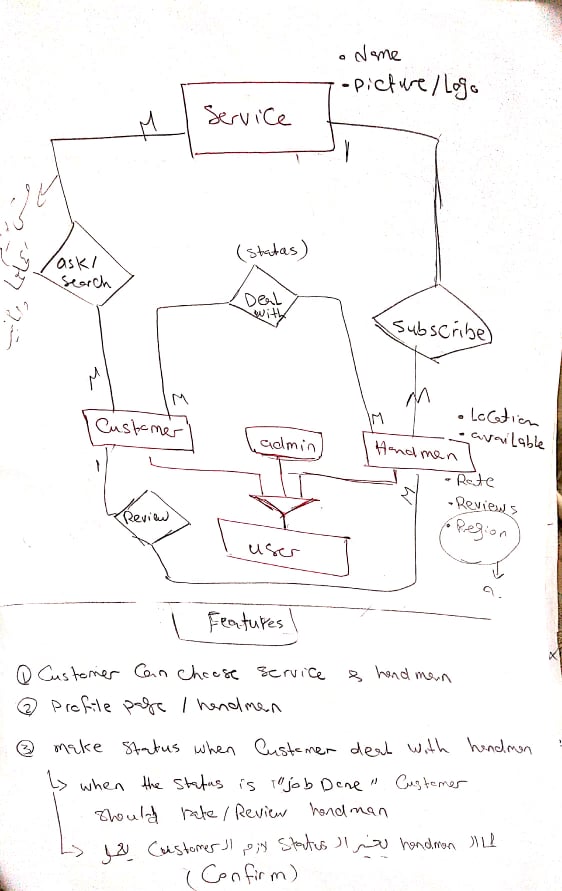 • Name
- Picture/Logo
Service
M
1
ask/
Search
(status)
Deal
with
Subscribe
M
M
M
M
Customer
admin
Handman
• Location
• available
• Rate
• Reviews
• Region
a.
1
M
Review
user
Features
① Customer Can choose service & handman
② Profile page / handman
③ make Status when Customer deal with handman
↳ when the status is "job Done" Customer
should rate/Review handman
↳ لما الـ handman يغير الـ Status لازم الـ Customer يعمل
(Confirm)